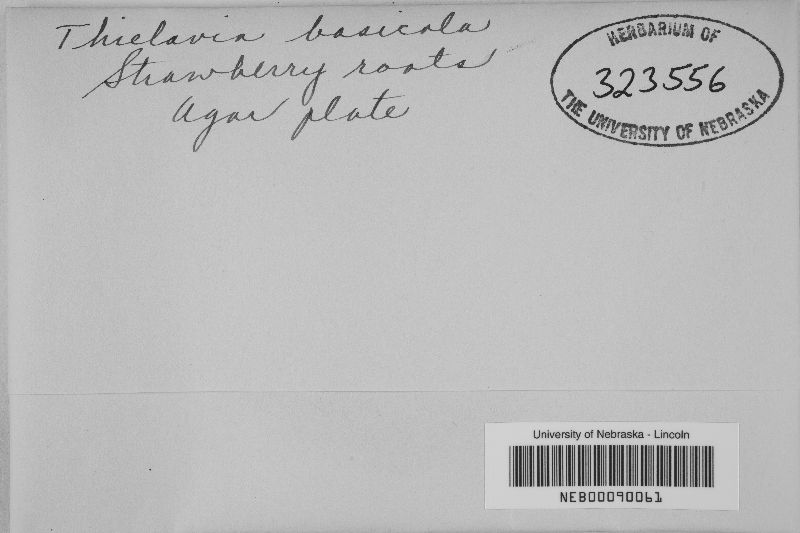 Thielavia basicola
Strawberry roots
Agar plate
HERBARIUM OF
323556
THE UNIVERSITY OF NEBRASKA
University of Nebraska - Lincoln
NEB00090061